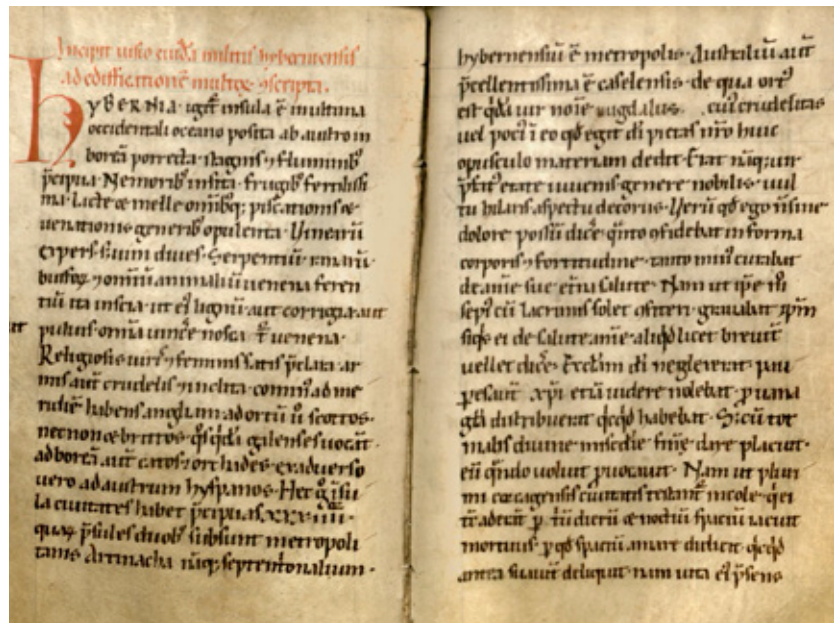 Incipit uisio cuiđa militis hyberniensis
ad edificationē multoꝝ ɔscripta.
HYBERNIA · igit̄ insula ē in ultima
occidentali oceano posita ab austro in
boreā porrecta · stagnis ⁊ fluminib᷒
p̄cipua · Nemorib᷒ insita · frugib᷒ fertilissi
ma · Lacte & melle omnib᷒q; piscationis &
uenationis generib᷒ opulenta · Uinearū
expers · s; uini diues · Serpentiū · ranarū ·
bufonū ⁊ omniū animaliū uenena feren
tiū ita inscia · ut ei᷒ lignū · aut corrigia · aut
puluis · omnia uincere noscat̄ uenena ·
Religiosis uiris ⁊ feminis satis p̄clara · ar
mis aut̄ crudelis ⁊ inclita · comin᷒ ad me
ridiē habens angliam · ad ortū u̓ scottos ·
necnon & brittos · q̓s q̓dā galenses uocāt ·
ad boreā aut̄ catos ⁊ orchades · ex aduerso
uero ad austrum hyspanos · Hec g̊ insu
la ciuitates habet p̄cipuas · xxx · iiii ·
quaꝝ p̄sules duob᷒ subsunt metropoli
tanis · Artmacha nāq; septentrionalium ·
hybernensiū ē metropolis · Australiū aut̄
p̄cellentissima ē caselensis · de qua ort᷒
est q̓dā uir noīe tugdalus · cui᷒ crudelitas
uel poci᷒ ī eo qđ egit dī pietas nr̄o huic
opusculo materiam dedit · Erat nāq; uir
p̄fat᷒ etate iuuenis · genere nobilis · uul
tu hilaris · aspectu decorus ·
dolore possū dicē · q̓nto ɔfidebat in forma
corporis ⁊ fortitudine · tanto min᷒ curabat
de anīe sue et̄na salute · Nam ut ip̄e m̊
sepi᷒ cū lacrimis solet ɔfiteri · grauabat ip̄m
siq̓s ei de salute anīe · aliq̓d licet breuit̄
uellet dicē · Ecclām dī neglexerat · pau
peres aut̄ xp̄i etiā uidere nolebat · ꝓ uana
gl̄a distribuerat q̓cq̓d habebat · S; cū tot
malis diuine mis̄cdie finē dare placuit ·
eū q̓ndo uoluit ꝓuocauit · Nam ut pluri
mi corcagensis ciuitatis testant̄ incole · q̓ ei
tc̄ aderāt ꝑ t̓ū dierū & noctiū spaciū iacuit
mortuus · ꝑ qđ spaciū amare didicit q̓cq̓d
antea suauit̄ deliquit · nam uita ei᷒ p̄sens